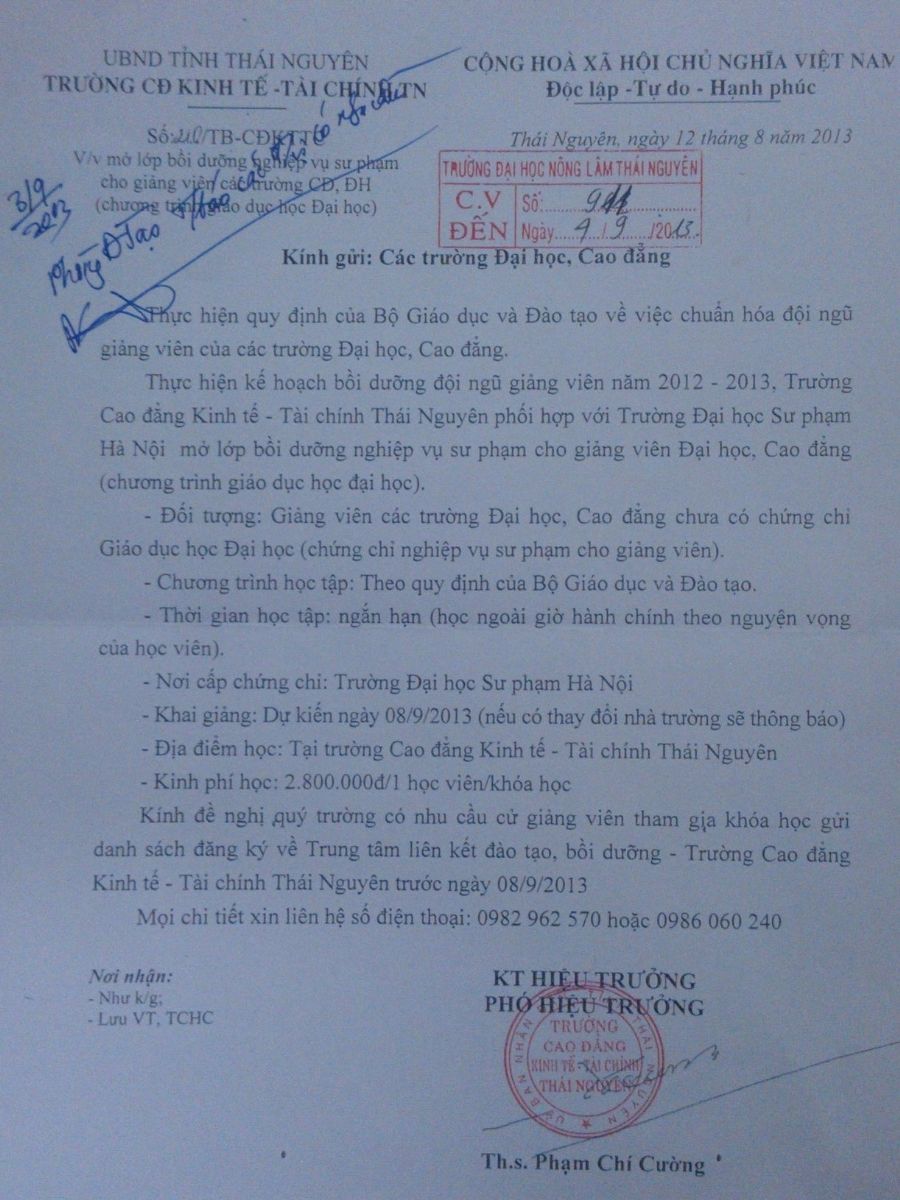 UBND TỈNH THÁI NGUYÊN
TRƯỜNG CĐ KINH TẾ -TÀI CHÍNH TN
CỘNG HOÀ XÃ HỘI CHỦ NGHĨA VIỆT NAM
Độc lập -Tự do - Hạnh phúc
Số: /TB-CĐKTTC
V/v mở lớp bồi dưỡng nghiệp vụ sư phạm
cho giảng viên các trường CĐ, ĐH
(chương trình giáo dục học Đại học)
Thái Nguyên, ngày 12 tháng 8 năm 2013
TRƯỜNG ĐẠI HỌC NÔNG LÂM THÁI NGUYÊN
C.V
ĐẾN
Số:
Ngày 4/9/2013
3/9
2013
Phòng ĐTạo
Kính gửi: Các trường Đại học, Cao đẳng
Thực hiện quy định của Bộ Giáo dục và Đào tạo về việc chuẩn hóa đội ngũ
giảng viên của các trường Đại học, Cao đẳng.
Thực hiện kế hoạch bồi dưỡng đội ngũ giảng viên năm 2012 - 2013, Trường
Cao đẳng Kinh tế - Tài chính Thái Nguyên phối hợp với Trường Đại học Sư phạm
Hà Nội mở lớp bồi dưỡng nghiệp vụ sư phạm cho giảng viên Đại học, Cao đẳng
(chương trình giáo dục học đại học).
- Đối tượng: Giảng viên các trường Đại học, Cao đẳng chưa có chứng chỉ
Giáo dục học Đại học (chứng chỉ nghiệp vụ sư phạm cho giảng viên).
- Chương trình học tập: Theo quy định của Bộ Giáo dục và Đào tạo.
- Thời gian học tập: ngắn hạn (học ngoài giờ hành chính theo nguyện vọng
của học viên).
- Nơi cấp chứng chỉ: Trường Đại học Sư phạm Hà Nội
- Khai giảng: Dự kiến ngày 08/9/2013 (nếu có thay đổi nhà trường sẽ thông báo)
- Địa điểm học: Tại trường Cao đẳng Kinh tế - Tài chính Thái Nguyên
- Kinh phí học: 2.800.000đ/1 học viên/khóa học
Kính đề nghị quý trường có nhu cầu cử giảng viên tham gia khóa học gửi
danh sách đăng ký về Trung tâm liên kết đào tạo, bồi dưỡng - Trường Cao đẳng
Kinh tế - Tài chính Thái Nguyên trước ngày 08/9/2013
Mọi chi tiết xin liên hệ số điện thoại: 0982 962 570 hoặc 0986 060 240
Nơi nhận:
- Như k/g;
- Lưu VT, TCHC
KT HIỆU TRƯỞNG
PHÓ HIỆU TRƯỞNG
UỶ BAN NHÂN DÂN TỈNH THÁI NGUYÊN
TRƯỜNG
CAO ĐẲNG
KINH TẾ -TÀI CHÍNH
THÁI NGUYÊN
Th.s. Phạm Chí Cường